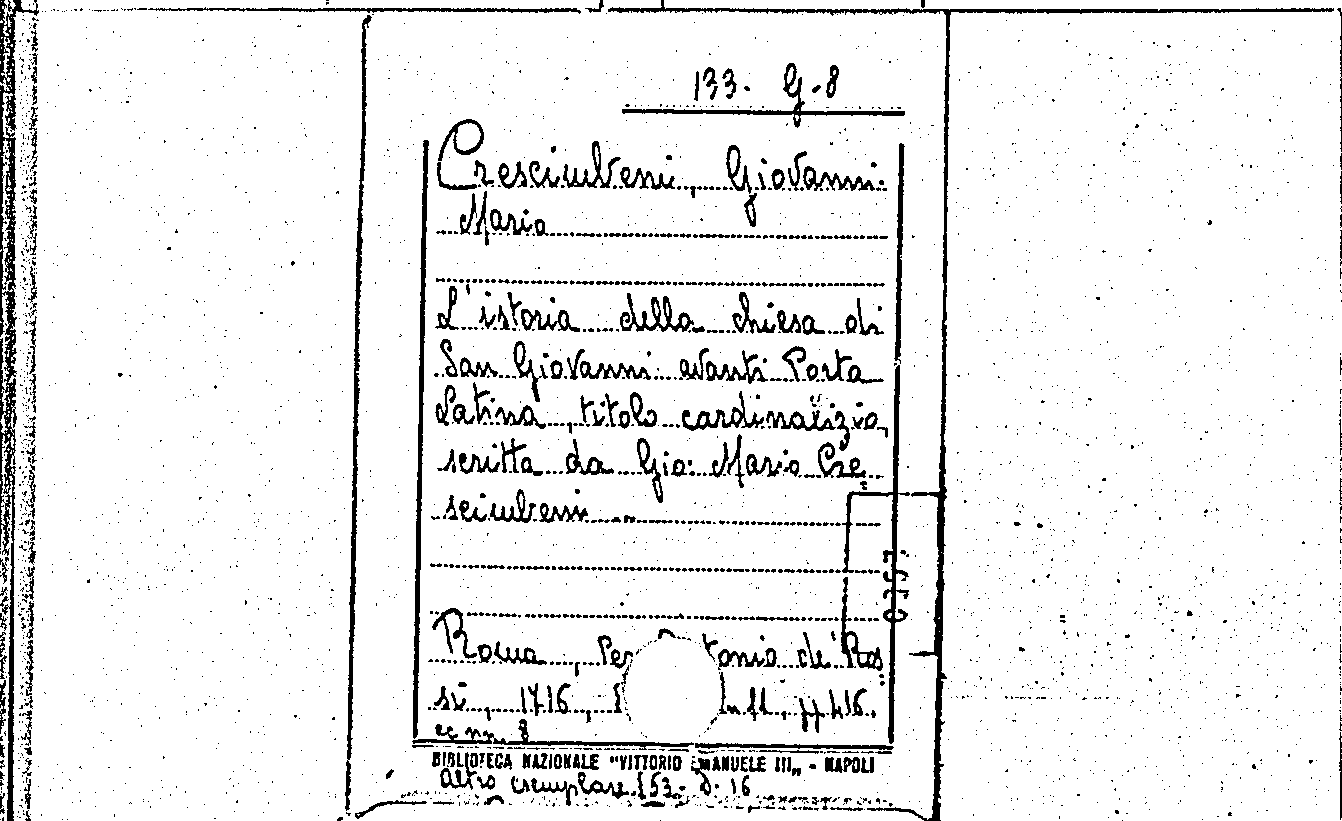 133. G. 8
Crescimbeni, Giovanni
Mario
L'istoria della chiesa di
San Giovanni avanti Porta
Latina, titolo cardinalizio,
scritta da Gio: Mario Cre
scimbeni ...
0357
Roma, per tonio de' Ros
si, 1716, pp 416.
ec nn. 8
BIBLIOTECA NAZIONALE "VITTORIO EMANUELE III" - NAPOLI
Altro esemplare 153. D. 16